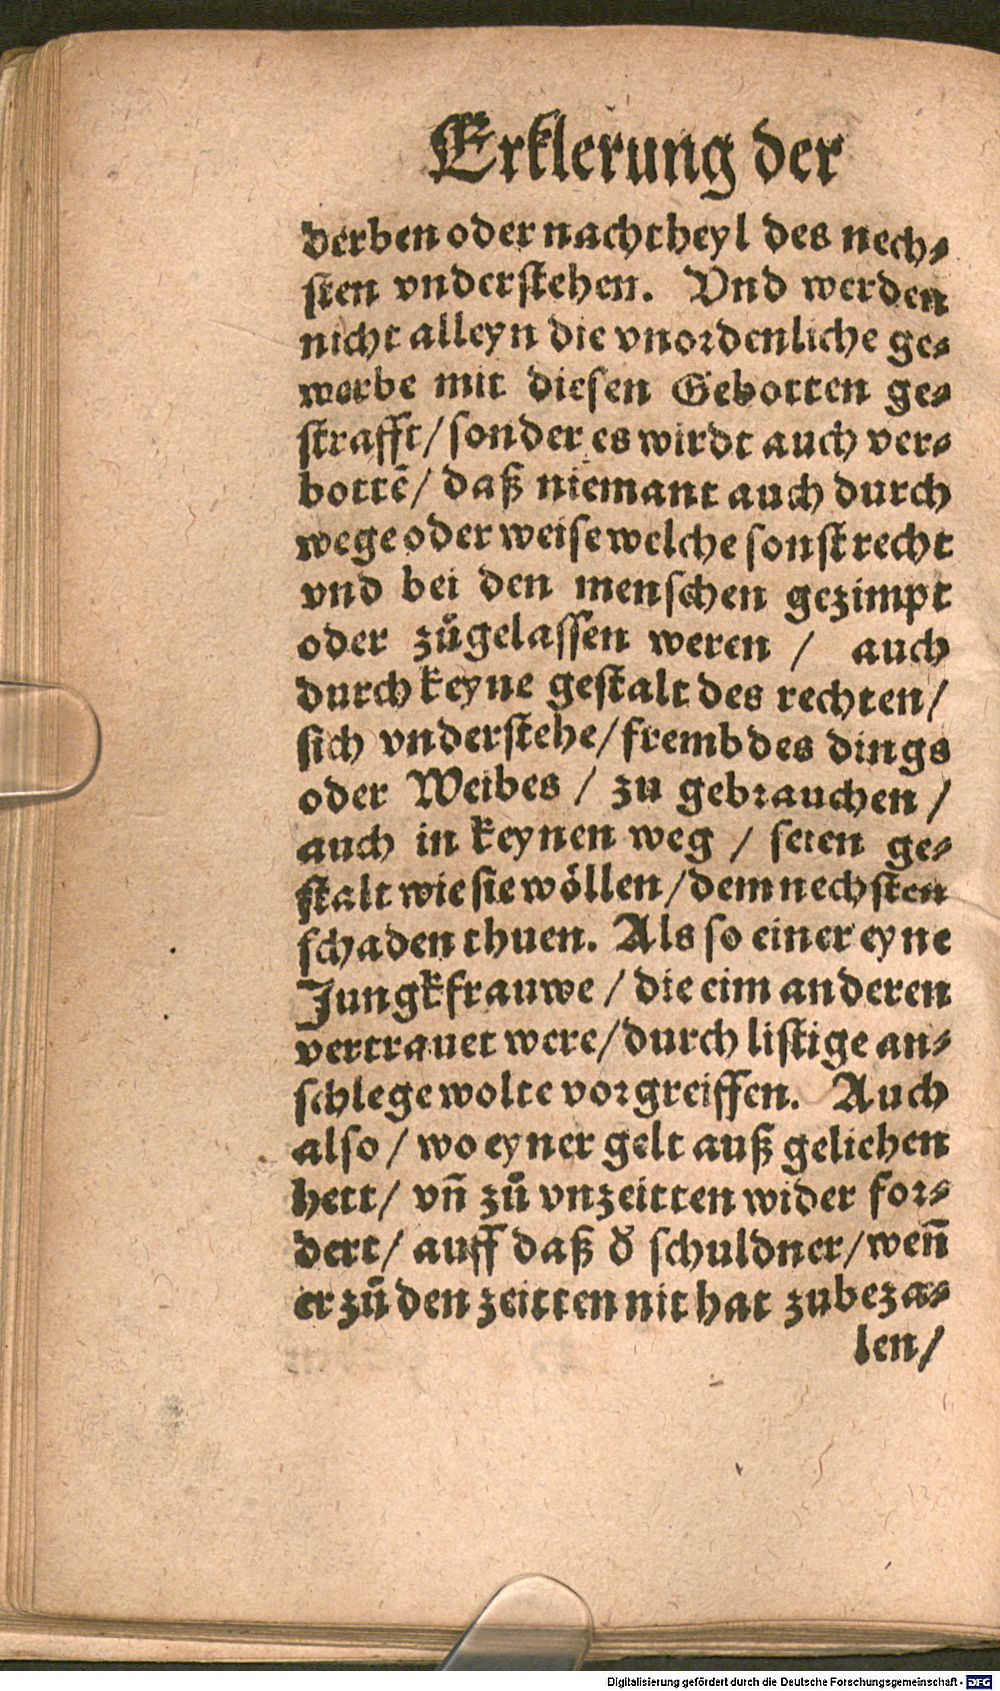 Erklerung der
derben oder nachtheyl des nech⸗
sten vnderstehen. Vnd werden
nicht alleyn die vnordenliche ge⸗
werbe mit diesen Gebotten ge⸗
strafft/ sonder es wirdt auch ver⸗
bottẽ/ daß niemant auch durch
wege oder weise welche sonst recht
vnd bei den menschen gezimpt
oder zůgelassen weren / auch
durch keyne gestalt des rechten/
sich vnderstehe/ frembdes dings
oder Weibes / zu gebrauchen /
auch in keynen weg / seien ge⸗
stalt wie sie wöllen / dem nechsten
schaden thuen. Als so einer eyne
Jungkfrauwe / die eim anderen
vertrauet were/ durch listige an⸗
schlege wolte vorgreiffen. Auch
also / wo eyner gelt auß gelichen
hett/ vñ zů vnzeitten wider for⸗
dert/ auff daß d̕ schuldner/ weñ
er zů den zeitten nit hat zubeza⸗
len/
Digitalisierung gefördert durch die Deutsche Forschungsgemeinschaft - DFG